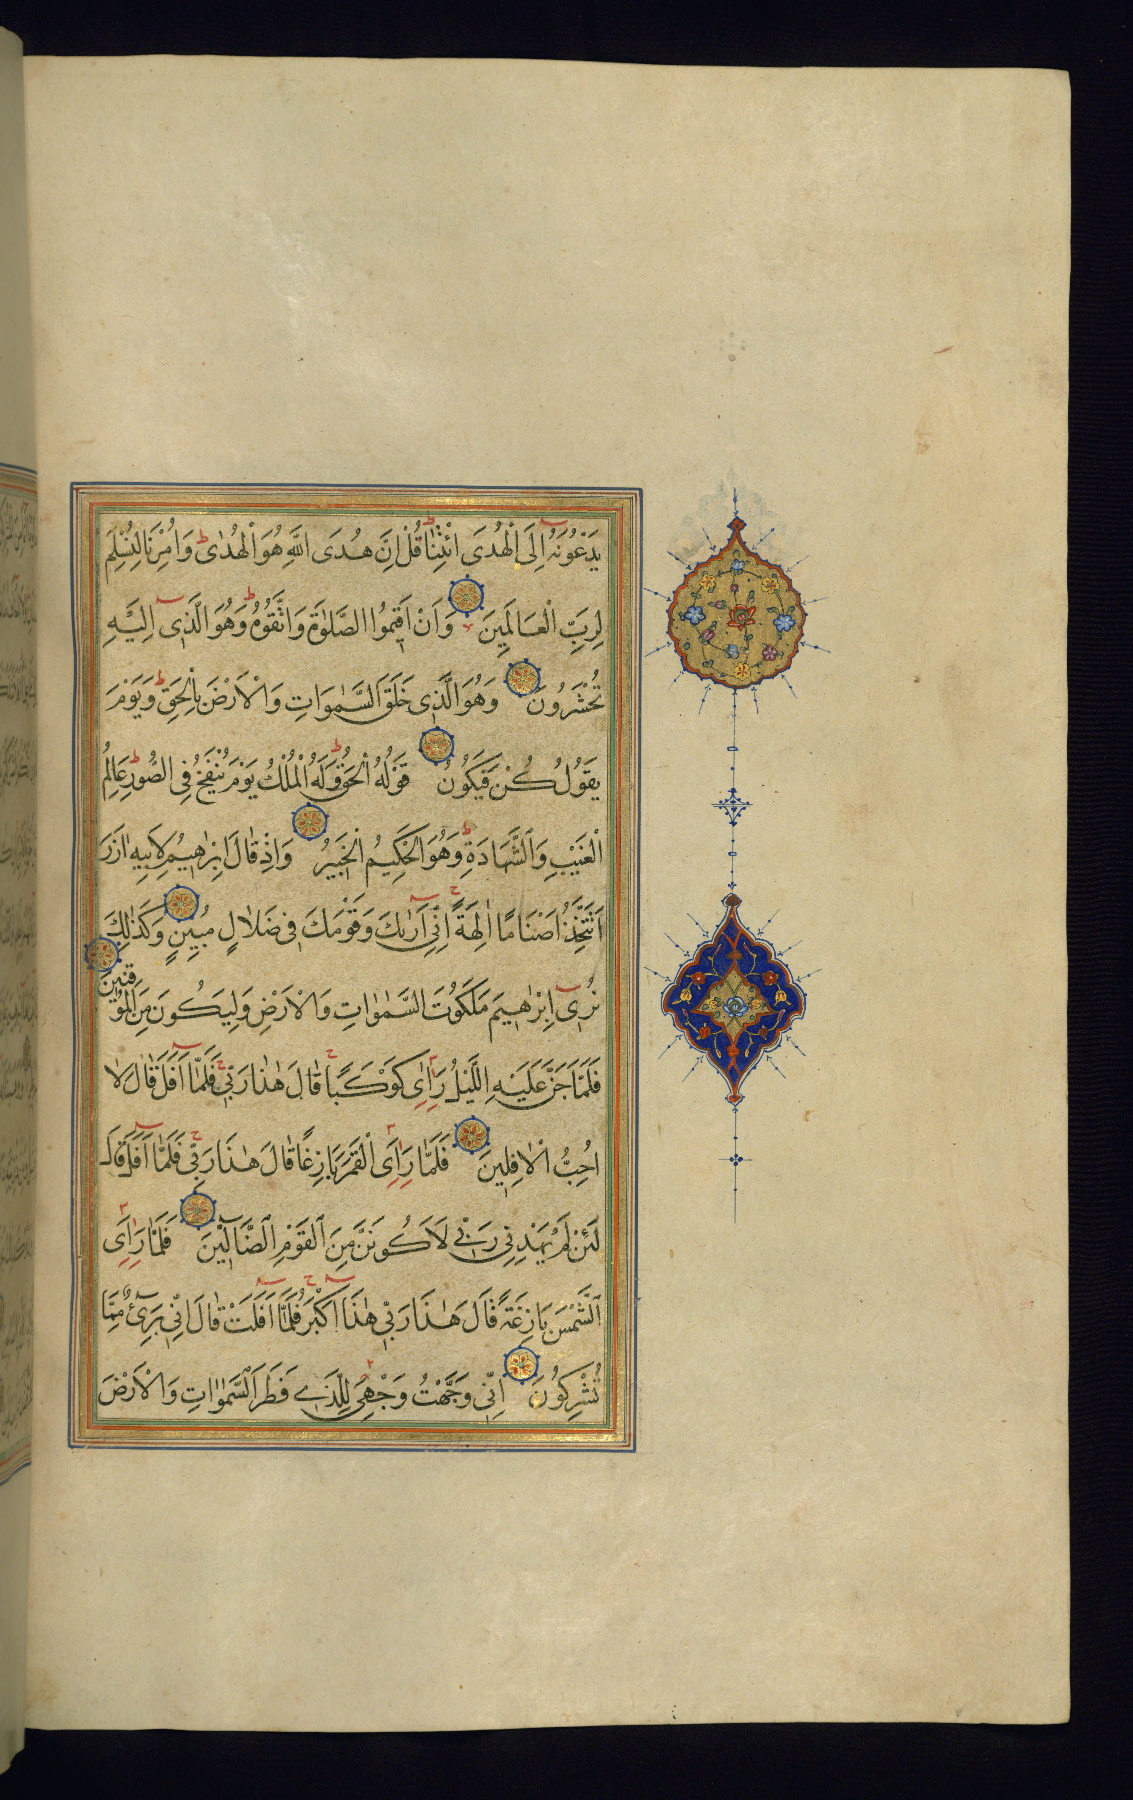 يَدْعُونَهُ اِلَى الْهُدَى ائْتِنَا قُلْ اِنَّ هُدَى اللّٰهِ هُوَ الْهُدٰى وَاُمِرْنَا لِنُسْلِمَ
لِرَبِّ الْعَالَمِينَ وَاَنْ اَقِيمُوا الصَّلٰوةَ وَاتَّقُوهُ وَهُوَ الَّذِى اِلَيْهِ
تُحْشَرُونَ وَهُوَ الَّذِى خَلَقَ السَّمٰوَاتِ وَالْاَرْضَ بِالْحَقِّ وَيَوْمَ
يَقُولُ كُنْ فَيَكُونُ قَوْلُهُ الْحَقُّ وَلَهُ الْمُلْكُ يَوْمَ يُنْفَخُ فِى الصُّورِ عَالِمُ
الْغَيْبِ وَالشَّهَادَةِ وَهُوَ الْحَكِيمُ الْخَبِيرُ وَاِذْ قَالَ اِبْرٰهِيمُ لِاَبِيهِ اٰزَرَ
اَتَتَّخِذُ اَصْنَامًا اٰلِهَةً اِنِّى اَرٰيكَ وَقَوْمَكَ فِى ضَلَالٍ مُبِينٍ وَكَذٰلِكَ
نُرِى اِبْرٰهِيمَ مَلَكُوتَ السَّمٰوَاتِ وَالْاَرْضِ وَلِيَكُونَ مِنَ الْمُوقِنِينَ
فَلَمَّا جَنَّ عَلَيْهِ اللَّيْلُ رَاٰى كَوْكَبًا قَالَ هٰذَا رَبِّى فَلَمَّا اَفَلَ قَالَ لَا
اُحِبُّ الْاٰفِلِينَ فَلَمَّا رَاَى الْقَمَرَ بَازِغًا قَالَ هٰذَا رَبِّى فَلَمَّا اَفَلَ قَالَ
لَئِنْ لَمْ يَهْدِنِى رَبِّى لَاَكُونَنَّ مِنَ الْقَوْمِ الضَّالِّينَ فَلَمَّا رَاَى
الشَّمْسَ بَازِغَةً قَالَ هٰذَا رَبِّى هٰذَا اَكْبَرُ فَلَمَّا اَفَلَتْ قَالَ اِنِّى بَرِىءٌ مِمَّا
تُشْرِكُونَ اِنِّى وَجَّهْتُ وَجْهِىَ لِلَّذِى فَطَرَ السَّمٰوَاتِ وَالْاَرْضَ